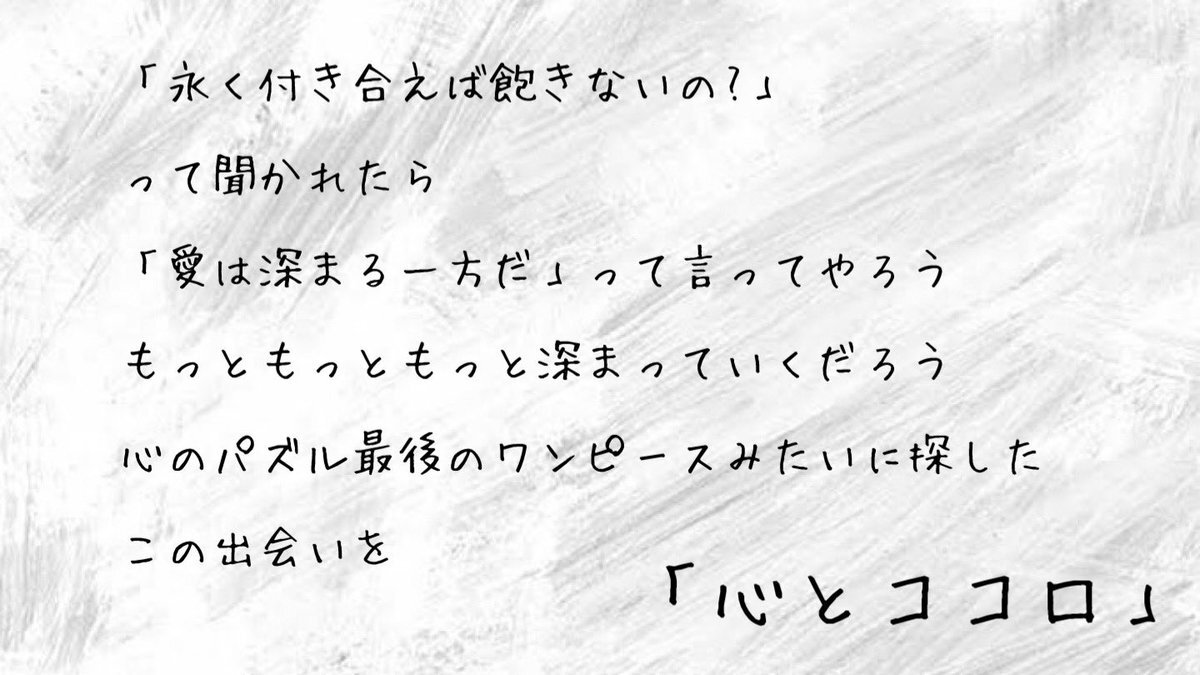 「永く付き合えば飽きないの?」
って聞かれたら
「愛は深まる一方だ」って言ってやろう
もっともっともっと深まっていくだろう
心のパズル最後のワンピースみたいに探した
この出会いを
「心とココロ」